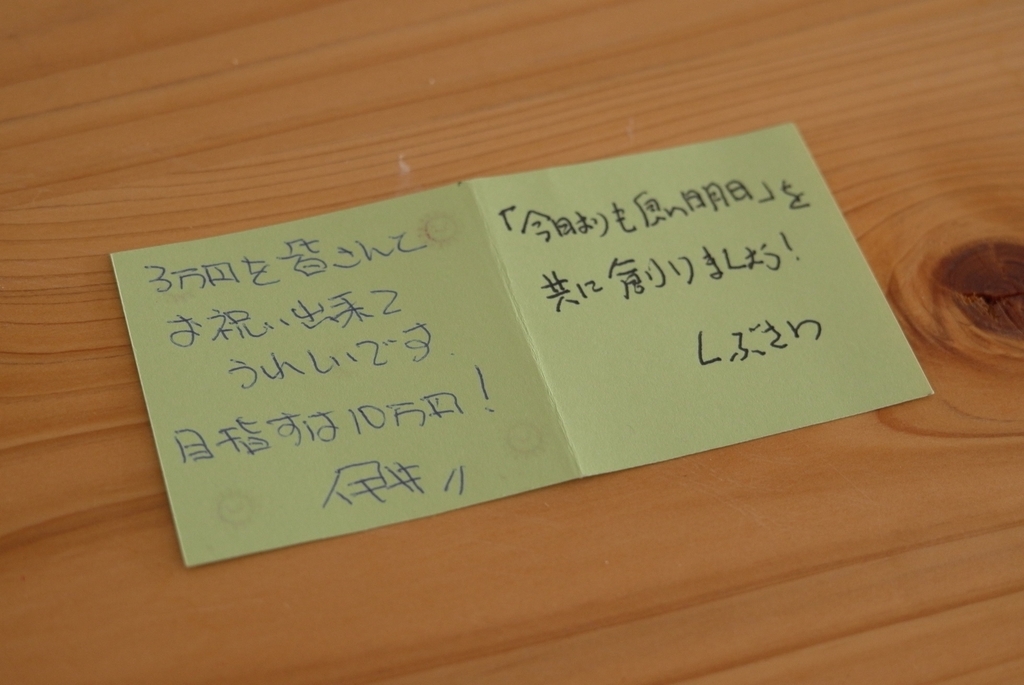 3万円を皆さんで
お祝い出来て
うれしいです.
目指すは10万円!
伊井〃
「今日よりも良い明日」を
共に創りましょう!
しぶさわ